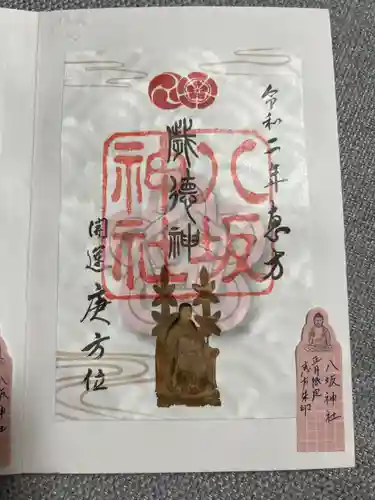 令和二年恵方
歳德神
開運庚方位
八坂
神社
八坂神社
正月限定
恵方朱印
八坂神社